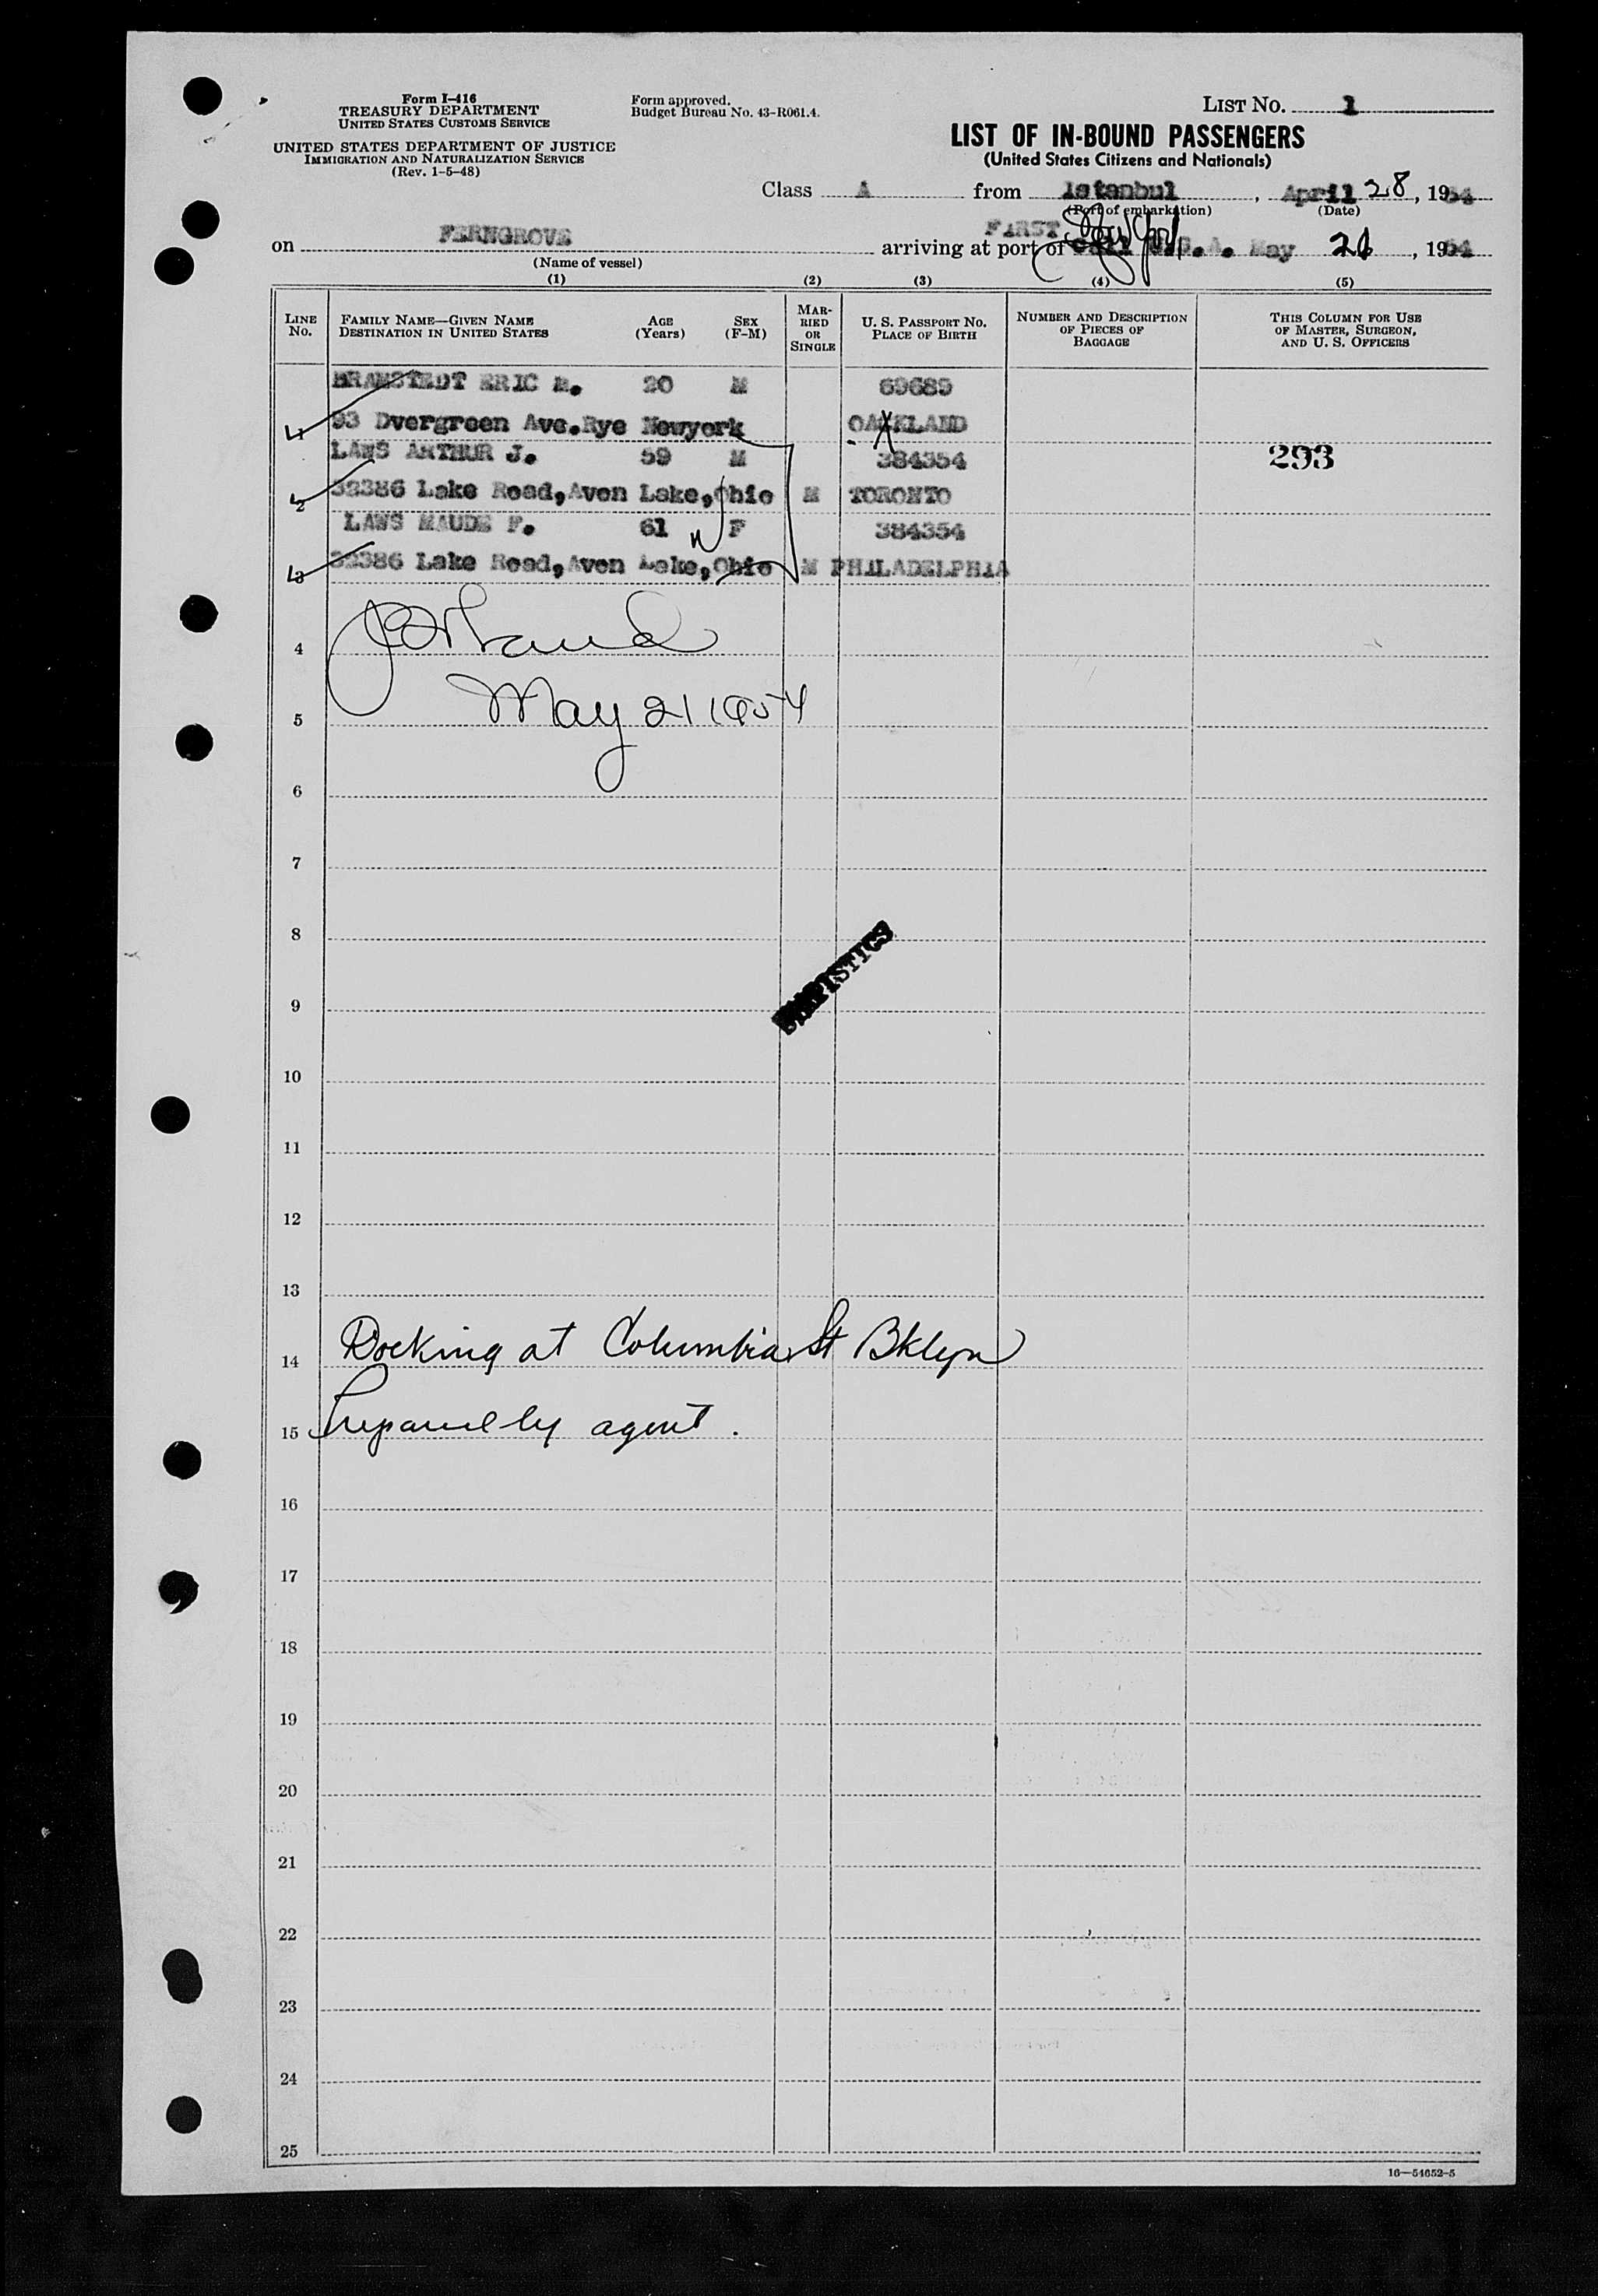 Form I-416
TREASURY DEPARTMENT
UNITED STATES CUSTOMS SERVICE
UNITED STATES DEPARTMENT OF JUSTICE
IMMIGRATION AND NATURALIZATION SERVICE
(Rev. 1-5-48)
Form approved.
Budget Bureau No. 43-R061.4.
LIST NO. 1
LIST OF IN-BOUND PASSENGERS
(United States Citizens and Nationals)
Class A from Istanbul, April 28, 1954
(Port of embarkation) (Date)
on FERNGROVE arriving at port of FIRST U.S.A. May 21, 1954
(Name of vessel)
(1) (2) (3) (4) (5)
LINE NO.
FAMILY NAME—GIVEN NAME
DESTINATION IN UNITED STATES
AGE (Years)
SEX (F-M)
MARRIED OR SINGLE
U. S. PASSPORT NO.
PLACE OF BIRTH
NUMBER AND DESCRIPTION OF PIECES OF BAGGAGE
THIS COLUMN FOR USE OF MASTER, SURGEON, AND U. S. OFFICERS
BRAMSTEDT ERIC 20 M 69689
1 93 Dvergreen Ave.Rye Newyork OAKLAND
LAWS ARTHUR J. 59 M 384354 293
2 32386 Lake Road,Avon Lake,Ohio M TORONTO
LAWS MAUDE F. 61 F 384354
3 32386 Lake Road,Avon Lake,Ohio M PHILADELPHIA
4
May 21 1954
5
6
7
8
STATISTICS
9
10
11
12
13
14 Docking at Columbia St Bklyn
15 Prepared by agent.
16
17
18
19
20
21
22
23
24
25
16—54652-5